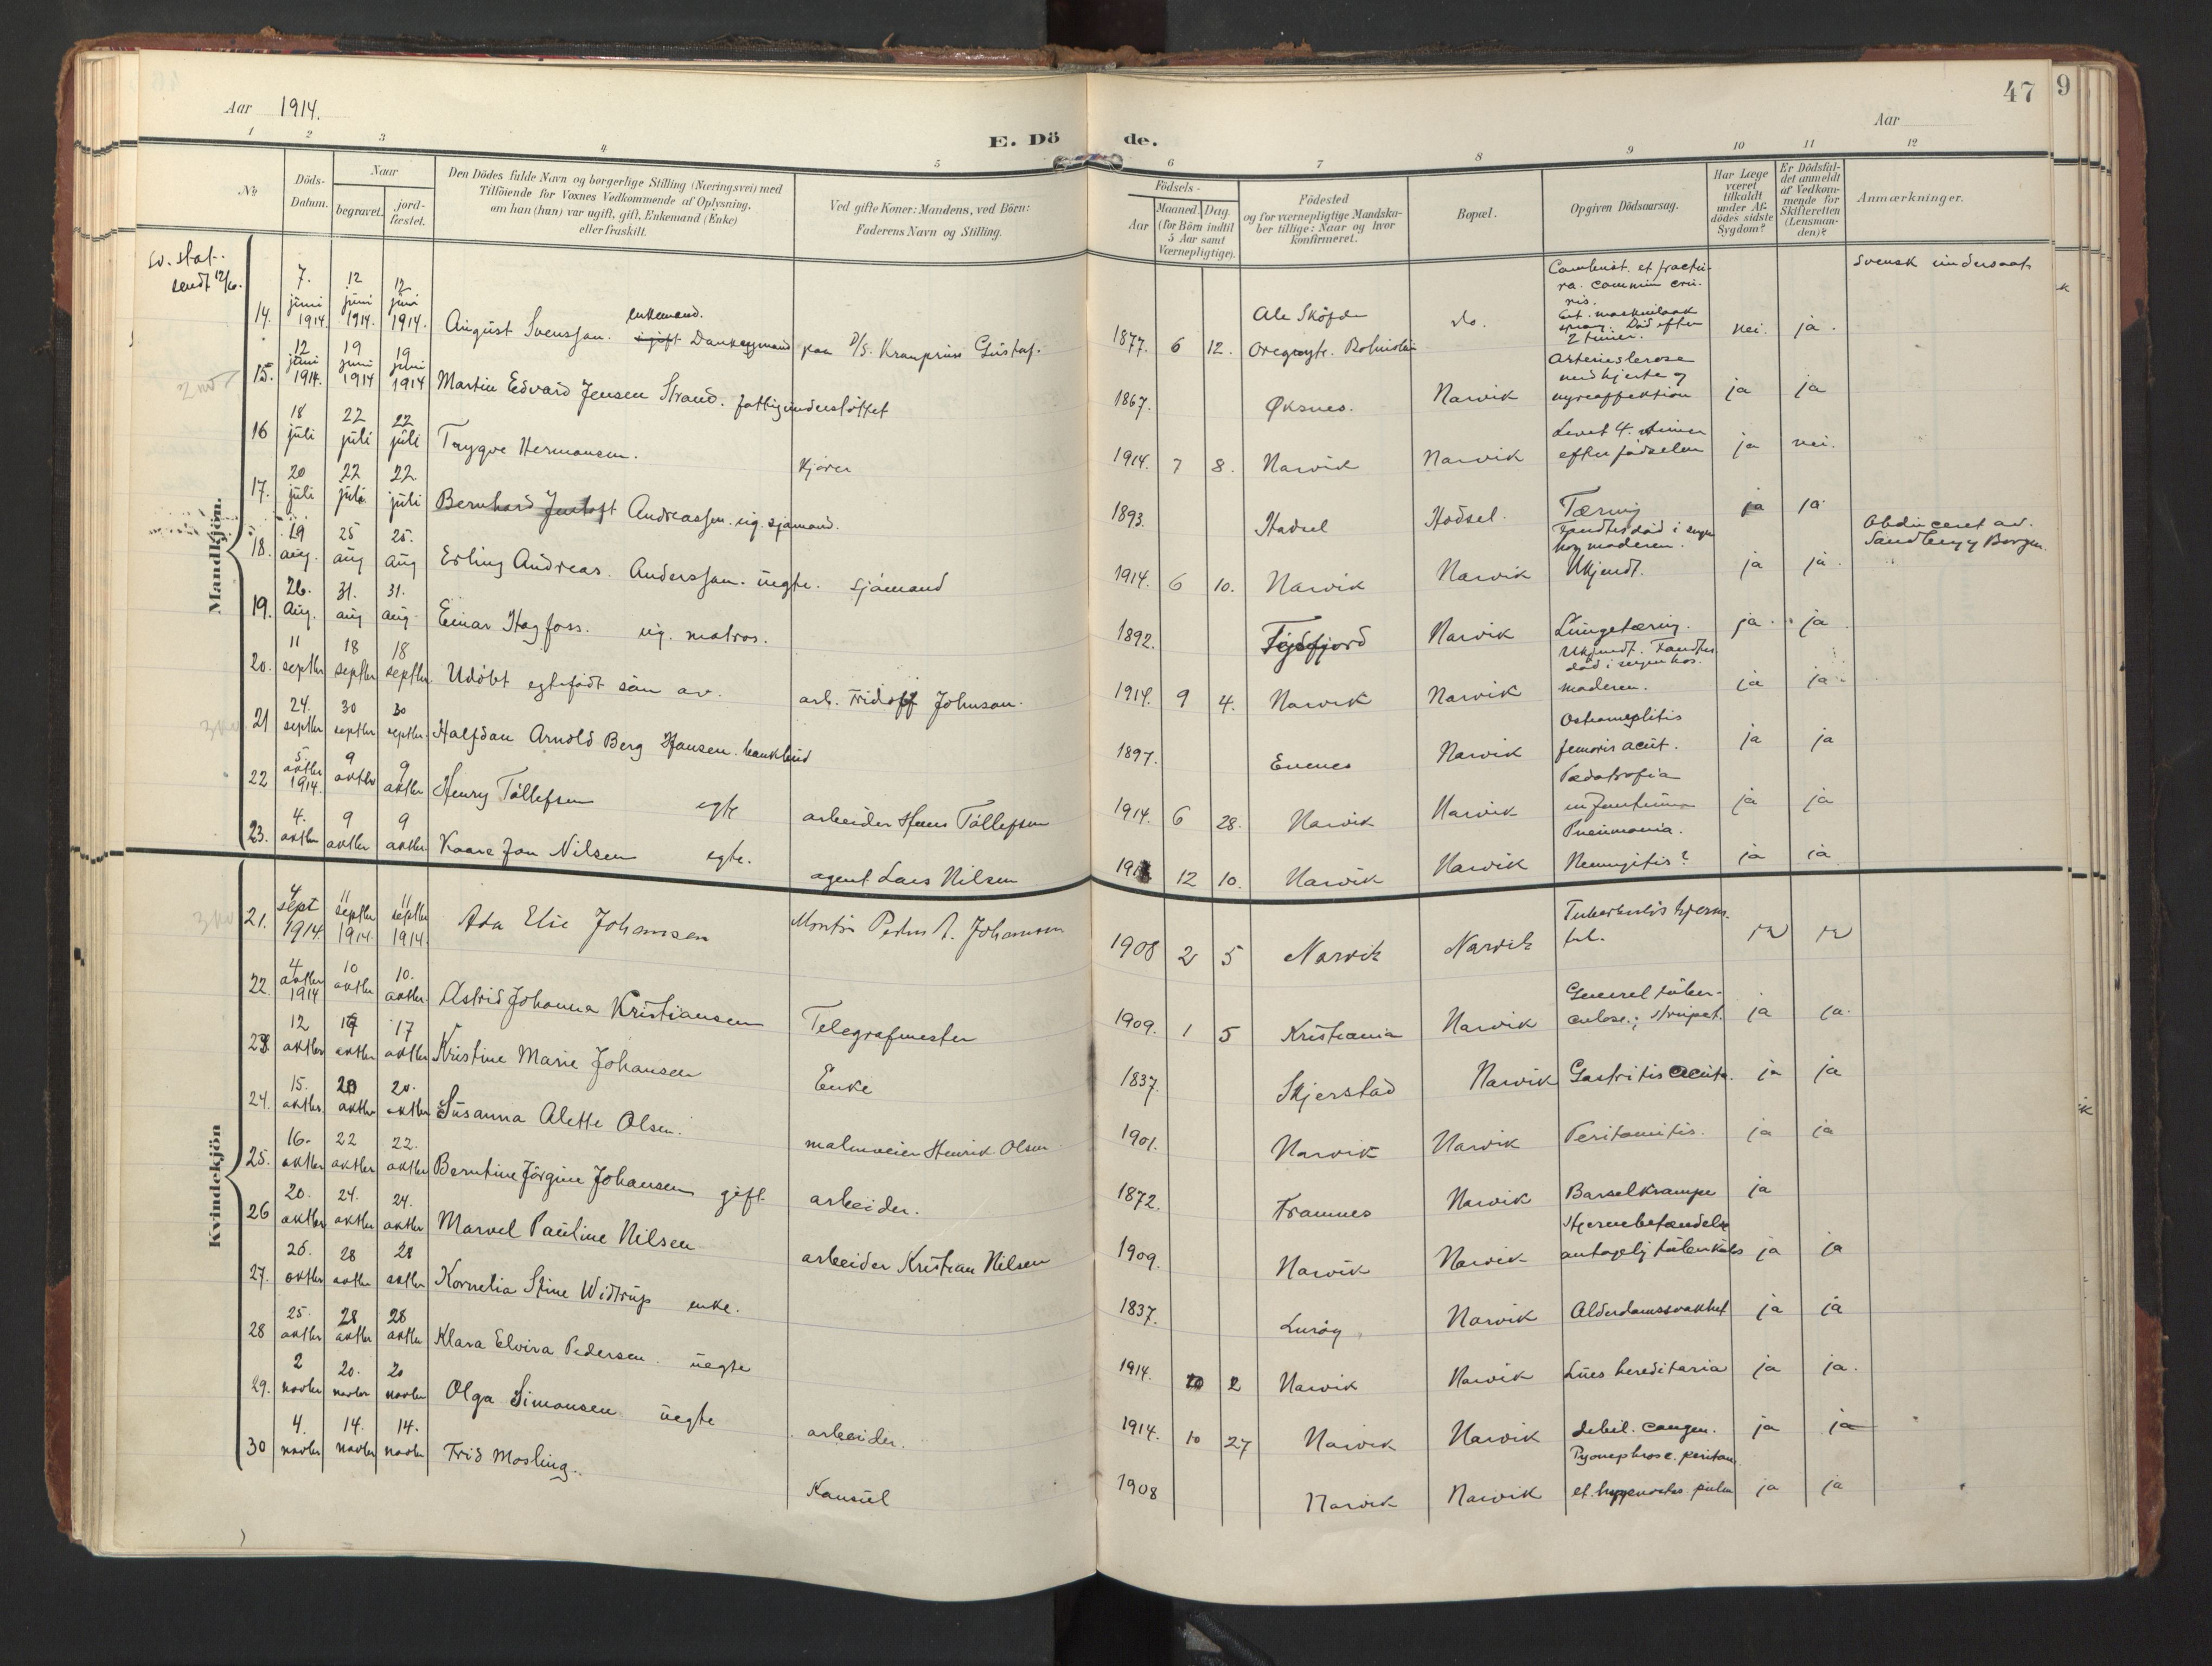 Aar 1914.
E. Dö de.
47
9
Aar
1 2 3 4 5 6 7 8 9 10 11 12
No.
Döds-Datum.
Naar begravet. jordfæstet.
Den Dödes fulde Navn og borgerlige Stilling (Næringsvei) med Tilföiende for Voxnes Vedkommende af Oplysning, om han (hun) var ugift, gift, Enkemand (Enke) eller fraskilt.
Ved gifte Koner: Mandens, ved Börn: Faderens Navn og Stilling.
Födsels-
Aar Maaned. Dag. (for Börn indtil 5 Aar samt Værnepligtige).
Födested og for værnepligtige Mandskaber tillige: Naar og hvor konfirmeret.
Bopæl.
Opgiven Dödsaarsag.
Har Læge været tilkaldt under Afdödes sidste Sygdom?
Er Dödsfaldet anmeldt af Vedkommende for Skifteretten (Lensmanden)?
Anmærkninger.
Mandkjön.
sv. stat. sendt 12/10.
14. 7. juni 1914. 12 juni 1914. 12 juni 1914. August Svensson. enkemand. ugift Donkeymand paa D/S. Kronprins Gustaf. 1877. 6 12. do. nei. ja. Svensk undersaat
15. 12 juni 1914. 19 juni 1914 19 juni 1914 Martin Edvard Jensen Strand. fattigunderstöttet 1867. Øksnes. Narvik Arteriesclerose med hjerte og nyreaffektion ja ja
16 18 juli 22 juli 22 juli Trygve Hermansen. Kjörer 1914. 7 8. Narvik Narvik Levet 4. timer efter födselen ja nei.
17. 20 juli 22 juli 22 juli Bernhard Jentoft Andreassen. ug. sjömand. 1893. Hadsel Hadsel. Tæring ja ja
18. 19 aug. 25 aug 25. aug Erling Andreas Anderssen. uegte. sjömand 1914. 6 10. Narvik Narvik Fandtes död i sengen hos moderen. Ukjendt. ja ja. Obduceret av. Sandberg og Borgen.
19. 26. aug. 31. aug 31. aug Einar Hagfoss. ug. matros. 1892. Tysfjord Narvik Lungetæring. ja. ja
20. 11 septbr 18 septbr 18 septbr. Udöbt egtefödt sön av. arb. Fridoff Johnson. 1914. 9 4. Narvik Narvik Ukjendt. Fandtes död i sengen hos moderen. ja ja
21 24. septbr 30 septbr 30 septbr. Halfdan Arnold Berg Hansen. bankbud 1897. Evenes Narvik Osteomyelitis femoris acut. ja ja
22 5. oktbr 1914. 9 oktbr 9 oktbr Henry Tollefsen egte arbeider Hans Tollefsen 1914. 6 28. Narvik Narvik Pædatrofia infantum ja ja
23. 4. oktbr 9 oktbr 9 oktbr. Kaare Jon Nilsen egte. agent Lars Nilsen 12 10. Narvik Narvik Pneumonia. Meningitis? ja ja
Kvindekjön
21. 4 sept 1914. 11 septbr 1914. 11 septbr 1914. Ada Elie Johansen Montör Peder A. Johansen 1908 2 5 Narvik Narvik ja ja
22. 4 oktbr 1914 10 oktbr 10. oktbr. Astrid Johanna Kristiansen Telegrafmester 1909. 1 5 Kristiania Narvik Generel tuberculose; strupet. ja ja.
23. 12 oktbr 17 oktbr 17 oktbr Kristine Marie Johansen Enke 1837. Skjerstad Narvik Gastritis acuta. ja ja
24. 15. oktbr. 20 oktbr 20. oktbr Susanna Alette Olsen. malmveier Henrik Olsen 1901. Narvik Narvik Peritonitis. ja ja
25. 16. oktbr 22 oktbr 22. oktbr Berntine Jörgine Johansen gift arbeider. 1872. Framnes Narvik Barselkrampe ja
26 20. oktbr 24. oktbr 24. oktbr Marvel Pauline Nilsen arbeider Kristian Nilsen 1909. Narvik Narvik Hjernebetændelse antagelig tuberkuløs ja ja
27. 26. oktbr 28 oktbr 28 oktbr Kornelia Stine Widtrup enke. 1837. Luröy Narvik Alderdomssvakhet ja ja
28 25. oktbr 28 oktbr 28 oktbr Klara Elvira Pedersen. uegte 1914. 10 2 Narvik Narvik Lues hereditaria ja ja.
29. 2 novbr 20. novbr 20 novbr Olga Simonsen uegte arbeider. 1914. 10 27 Narvik Narvik debil. congen. ja ja
30 4. novbr 14. novbr 14. novbr Frid Mosling. Konsul 1908 Narvik Narvik Pyonephrose. periton. ja ja